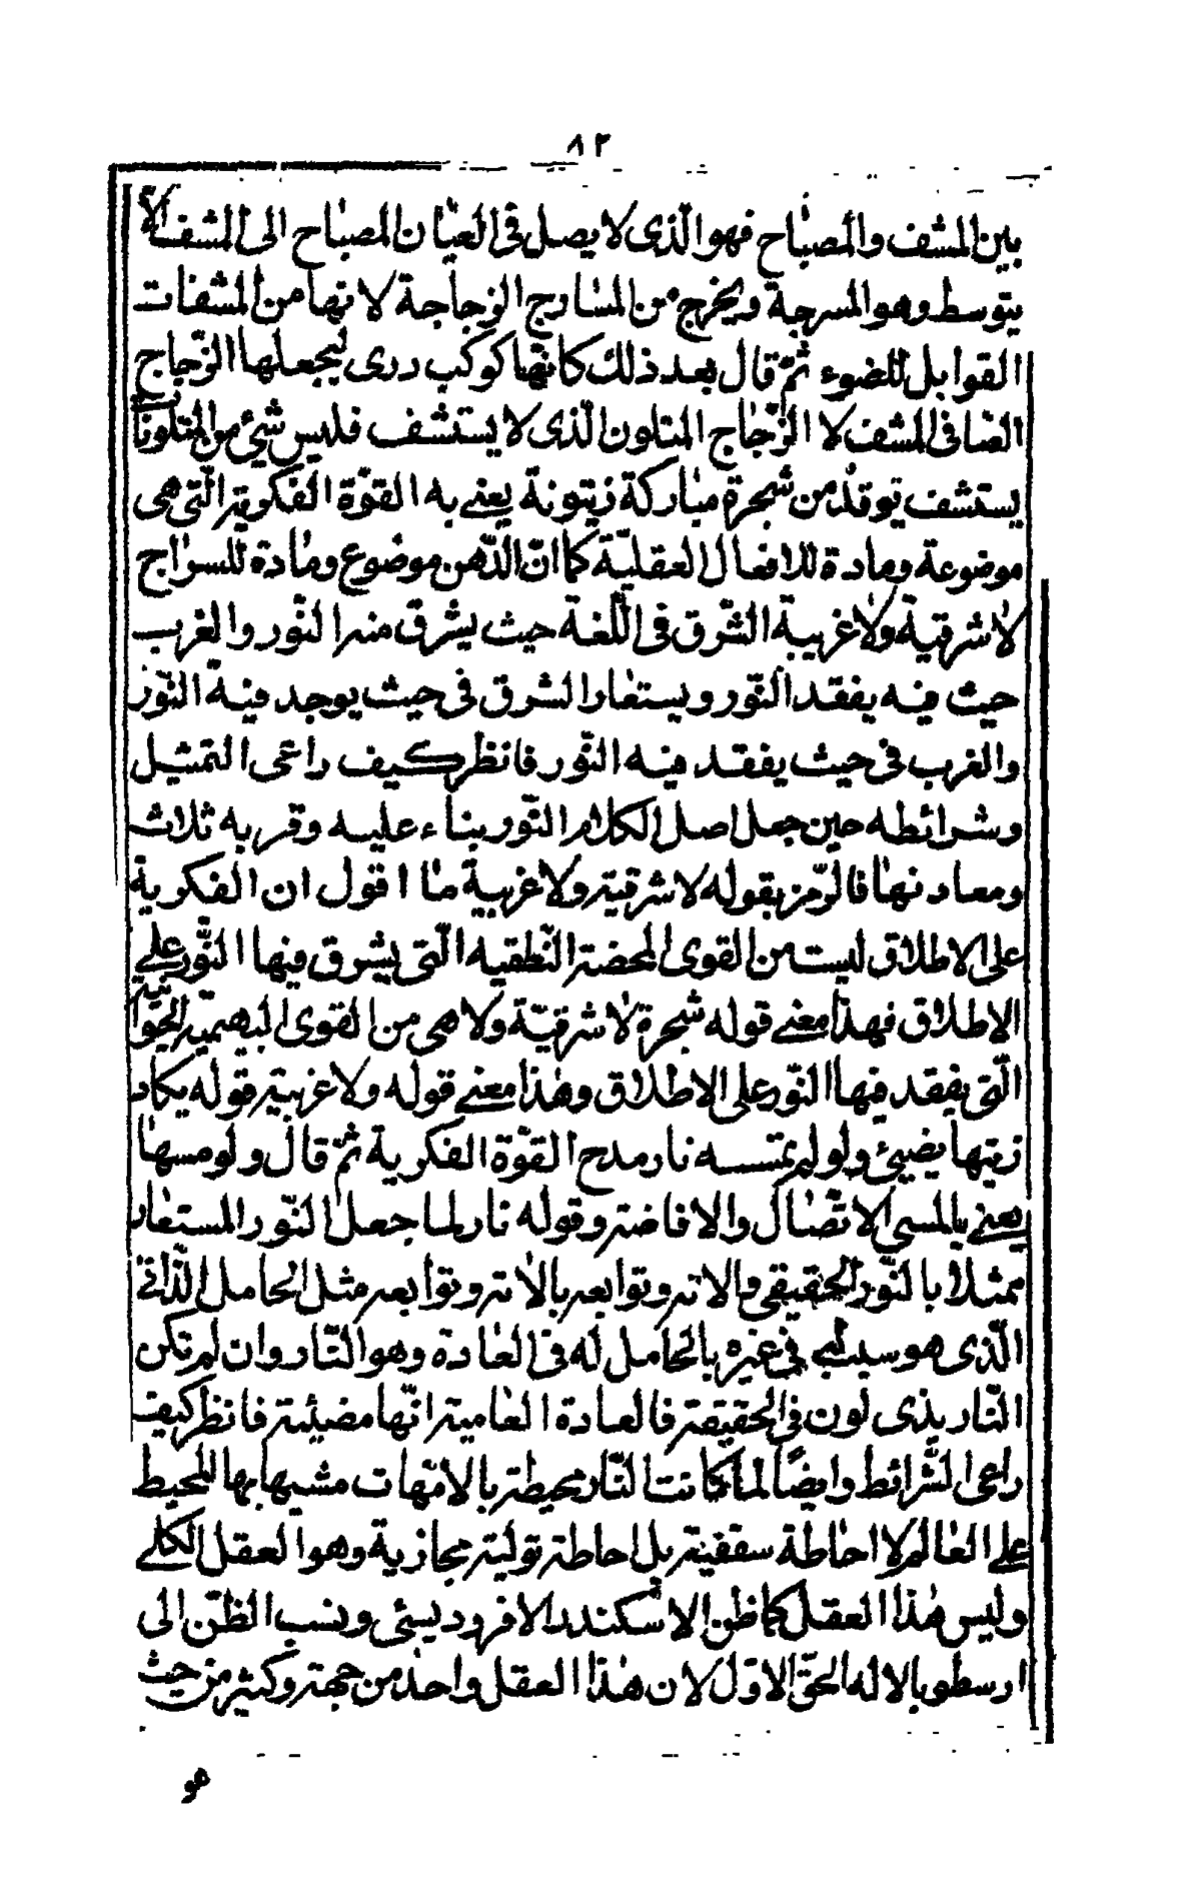 ٨٢
بين المشف والمصباح فهو الّذى لا يصل فى العيان المصباح الى المشف الّا
بتوسط وهو المسرجة ويخرج من المسارج الزجاجة لانها من المشفات
القوابل للضوء ثمّ قال بعد ذلك كانّها كوكب درى ليجعلها الزّجاج
الصّافى المشف لا الزّجاج المتلون الّذى لا يستشف فليس شيئ من المتلونات
يستشف توقد من شجرة مباركة زيتونة يعنى به القوّة الفكرية الّتى هى
موضوعة ومادة للافعال العقليّة كما انّ الدّهن موضوع ومادة للسراج
لا شرقية ولا غربية الشّرق فى اللّغة حيث يشرق منه النّور والغرب
حيث فيه يفقد النّور ويستعار الشرق فى حيث يوجد فية النّور
والغرب فى حيث يفقد فيه النّور فانظر كيف راعى التمثيل
وشرائطه حين جعل اصل الكلام النّور بناء عليه وقربه ثلاث
ومعادنها فالرّمز بقوله لا شرقية ولا غربية ما اقول ان الفكرية
على الاطلاق ليست من القوى المحضة النّطقيه الّتى يشرق فيها النّور على
الاطلاق فهذا معنى قوله شجرة لا شرقيّة ولا هى من القوى البهيمية الحيوانية
الّتى يفقد فيها النّور على الاطلاق وهذا معنى قوله ولا غربية قوله يكاد
زيتها يضيئ ولو لم تمسسه نار مدح القوّة الفكرية ثمّ قال ولو مسها
يعنى بالمس الاتّصال والافاضة وقوله نار لما جعل النّور المستعار
ممثلا بالنّور الحقيقى والاته وتوابعه بالاته وتوابعه مثل الحامل الذّاتى
الّذى هو سبب له فى غيره بالحامل له فى العادة وهو النّار وان لم تكن
النّار بذى لون فى الحقيقة فالعادة العامية انّها مضيئة فانظر كيف
راعى الشّرائط وايضًا لما كانت النّار محيطة بالامّهات مشبها بها المحيط
على العالم لا احاطة سقفية بل احاطة توليّة مجازية وهو العقل الكلى
وليس هذا العقل كما ظن الاسكندر الافروديسئى ونسب الظّن الى
ارسطو بالاله الحقّ الاوّل لان هذا العقل واحد من جهة وكثير من حيث
هو